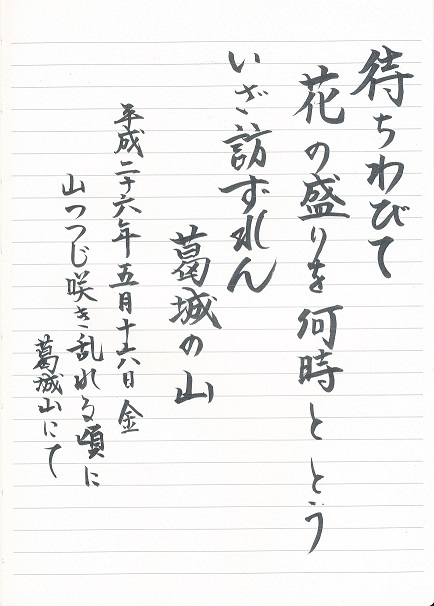 待ちわびて
花の盛りを何時ととう
いざ訪ずれん
葛城の山
平成二十六年五月十六日 金
山つつじ咲き乱れる頃に
葛城山にて